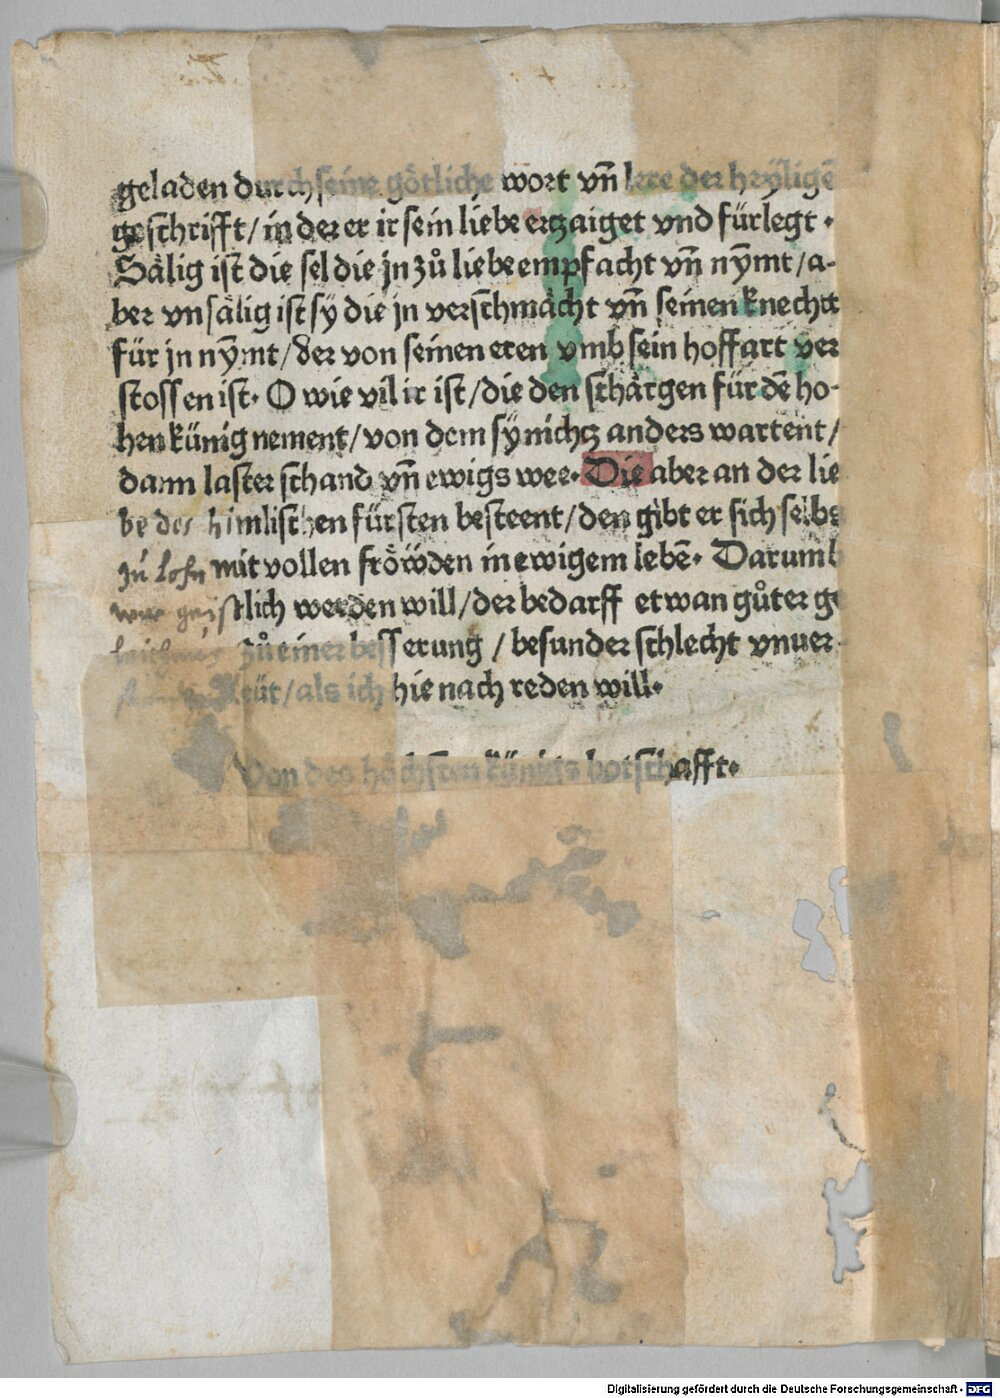 geladen durch seine götliche wort vn̄ lere der heÿligē
geschrifft/in der er ir sein liebe erzaiget vnd fürlegt·
Sälig ist die sel die jn zů liebe empfacht vnd nÿmt/a-
ber vnsälig ist sÿ die jn verschmächt vnd seinen knecht
für jn nÿmt/der von seinen eren vmb sein hoffart ver
stossen ist· O wie vil ir ist/die den schärgen für dē ho-
hen künig nement/von dem sÿ nichtz anders wartent/
dann laster schand vnd ewigs wee· Die aber an der lie
be des himlischen fürsten besteent/den gibt er sich selbs
zů lohn mit vollen fröẅden in ewigem lebē· Darumb
wer geistlich werden will/der bedarff etwan gůter ge
zů einer besserung/besunder schlecht vnuer-
leüt/als ich hie nach reden will·
Von des höchsten künigs botschafft·
Digitalisierung gefördert durch die Deutsche Forschungsgemeinschaft - DFG